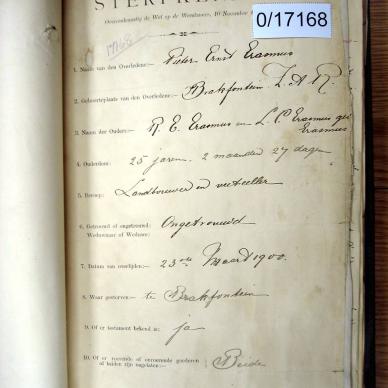 0/17168
Overeenkomstig de Wet op de Weeskamer, 10 November
17168
1. Naam van den Overledene:— Pieter Ernst Erasmus
2. Geboorteplaats van den Overledene: Brakfontein Z. A. R.
3. Namen der Ouders:— P. E. Erasmus en L. C. Erasmus geb
Erasmus
4. Ouderdom: 25 jaren. 2 maanden 27 dagen
5. Beroep: Landbouwer en veeteeller
6. Getrouwd of ongetrouwd: Ongetrouwd
Weduwnaar of Weduwe:
7. Datum van overlijden:— 23ste Maart 1900.
8. Waar gestorven.— te Brakfontein
9. Of er testament bekend is: ja
10. Of er roerende of onroerende goederen
of beiden zijn nagelaten:— Beide